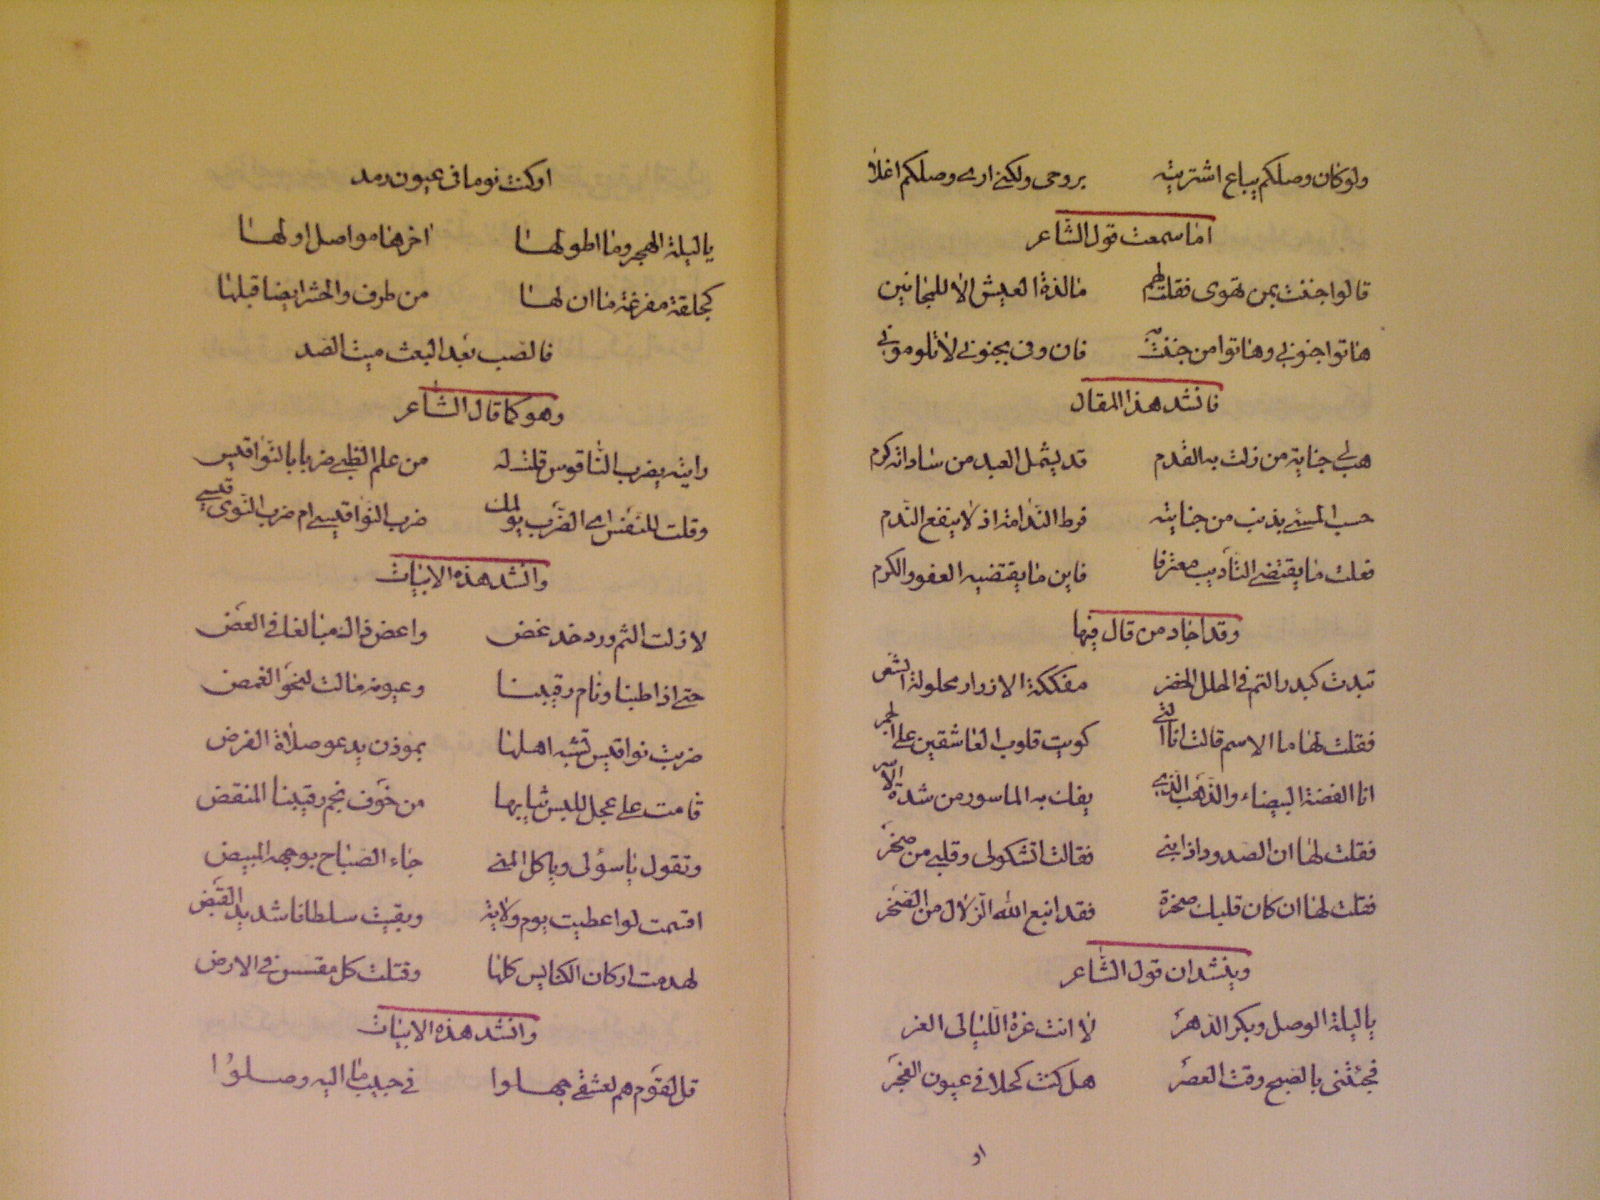 ولو كان وصلكم يباع اشتريته بروحى ولكنى ارى وصلكم اغلا
اما سمعت قول الشاعر
قالوا جننت بمن تهوى فقلت لهم ما لذة العيش الا للمجانين
هاتوا جنونى وهاتوا من جننت به فان وفى بجنونى لا تلومونى
فانشد هذا المقال
هب لى جناية من زلت به القدم قد يشمل العبد من ساداته كرم
حسب المسئ بذنب من جنايته فرط الندامة اذ لا ينفع الندم
فعلت ما يقتضى التأديب معترفا فاين ما يقتضيه العفو والكرم
وقد اجاد من قال فيها
تبدت كبدر التم فى الحلل الخضر مفككة الازرار محلولة الشعر
فقلت لها ما الاسم قالت انا التى كويت قلوب العاشقين على الجمر
انا الفضة البيضاء والذهب الذى يفك به الماسور من شدة الاسر
فقلت لها ان الصدود اذابنى فقالت اتشكو لى وقلبى من صخر
فقلت لها ان كان قلبك صخرة فقد انبع الله الزلال من الصخر
وينشدان قول الشاعر
يا ليلة الوصل وبكر الدهر لا انت غرة الليالى الغر
فجئتنى بالصبح وقت العصر هل كنت كحلا فى عيون الفجر
او
او كنت نوما فى عيون رمد
يا ليلة الهجر وما اطولها اخرها مواصل اولها
كحلقة مفرغة ما ان لها من طرف والحشر ايضا قبلها
فالصب بعد البعث ميت الصد
وهو كما قال الشاعر
رايته يضرب الناقوس قلت له من علم الظبى ضربا بالنواقيس
وقلت للنفس اى الضرب يولمك ضرب النواقيس ام ضرب النوى قيسى
وانشد هذه الابيات
لا زلت الثم ورد خد غض واعض ذاك مبالغا فى العض
حتى اذا طبنا ونام رقيبنا وعيونه مالت لنحو الغمض
ضربت نواقيس تشبه اهلها بموذن يدعو صلاة الفرض
قامت على عجل للبس ثيابها من خوف نجم رقيبنا المنقض
وتقول يا سؤلى ويا كل المنى جاء الصباح بوجهه المبيض
اقسمت لو اعطيت يوم ولاية وبقيت سلطانا شديد القبض
لهدمت اركان الكنايس كلها وقتلت كل مقسس فى الارض
وانشد هذه الابيات
قل لقوم هم لعشقى جهلوا فى حبيب ما اليه وصلوا